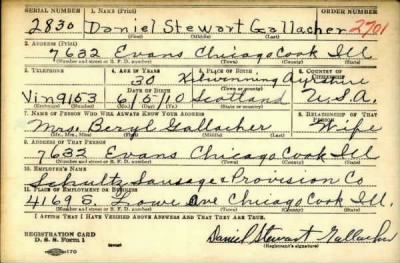 SERIAL NUMBER 1. NAME (Print) ORDER NUMBER
2830 Daniel Stewart Gallacher 2701
(First) (Middle) (Last)
2. ADDRESS (Print)
7632 Evans Chicago Cook Ill
(Number and street or R. F. D. number) (Town) (County) (State)
3. TELEPHONE 4. AGE IN YEARS 5. PLACE OF BIRTH 6. COUNTRY OF CITIZENSHIP
30 Kilwinning Ayrshire
DATE OF BIRTH (Town or county)
Vin 9153 6/5/10 Scotland U.S.A.
(Mo.) (Day) (Yr.) (State or country)
7. NAME OF PERSON WHO WILL ALWAYS KNOW YOUR ADDRESS 8. RELATIONSHIP OF THAT PERSON
Mrs Beryl Gallacher Wife
(Mr., Mrs., Miss) (First) (Middle) (Last)
9. ADDRESS OF THAT PERSON
7632 Evans Chicago Cook Ill
(Number and street or R. F. D. number) (Town) (County) (State)
10. EMPLOYER'S NAME
Schultz Sausage & Provision Co
11. PLACE OF EMPLOYMENT OR BUSINESS
4169 S. Lowe Ave Chicago Cook Ill.
(Number and street or R. F. D. number) (Town) (County) (State)
I AFFIRM THAT I HAVE VERIFIED ABOVE ANSWERS AND THAT THEY ARE TRUE.
REGISTRATION CARD
D. S. S. Form 1 Daniel Stewart Gallacher
(Registrant's signature)